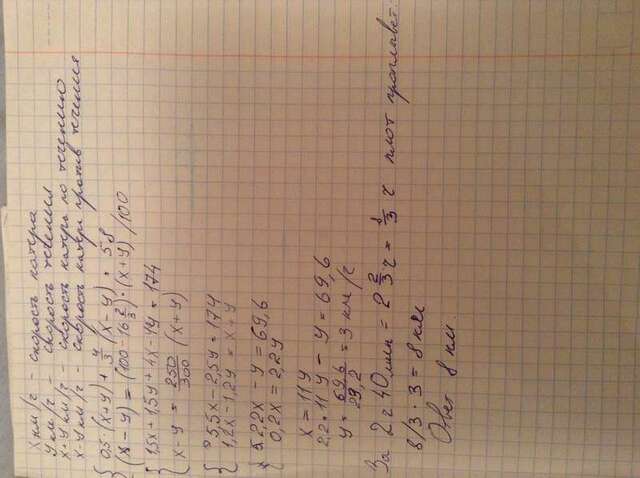 x км/г - скорость катера
y км/г - скорость течения
x+y км/г - скорость катера по течению
x-y км/г - скорость катера против течения
{ 0,5·(x+y) + 4/3 (x-y) = 58
(x-y) = (100 - 16 2/3)·(x+y)/100
{ 1,5x + 1,5y + 4x - 4y = 174
x-y = 250/300 (x+y)
{ 5,5x - 2,5y = 174
1,2x - 1,2y = x+y
{ 2,2x - y = 69,6
0,2x = 2,2y
x = 11y
2,2·11y - y = 69,6
y = 69,6/29,2 = 3 км/г
За 2 г 40 мин = 2 2/3 г = 8/3 г плот проплавет.
8/3 · 3 = 8 км
Ответ 8 км.